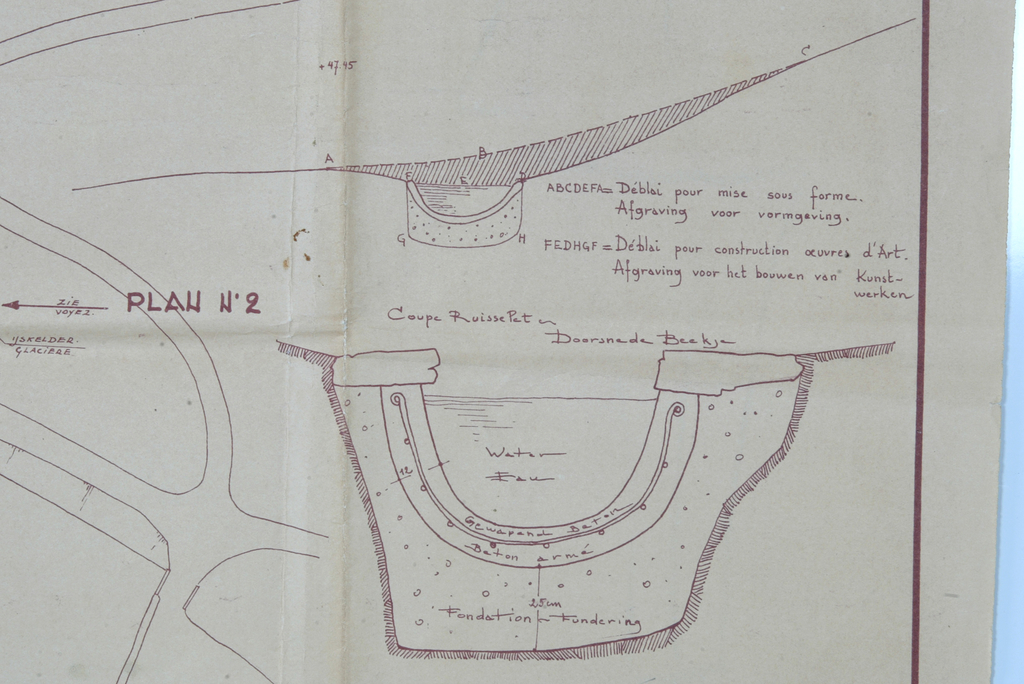 +47.45
C
A
B
F
E
D
G
H
ABCDEFA= Déblai pour mise sous forme.
Afgraving voor vormgeving.
FEDHGF = Déblai pour construction œuvres d'Art.
Afgraving voor het bouwen van Kunst-
werken
ZIE
VOYEZ
PLAN N°2
IJSKELDER
GLACIÈRE
Coupe Ruisselet en
Doorsnede Beekje
Water
Eau
12
Gewapend Beton
Béton armé
25cm
Fondation - Fundering